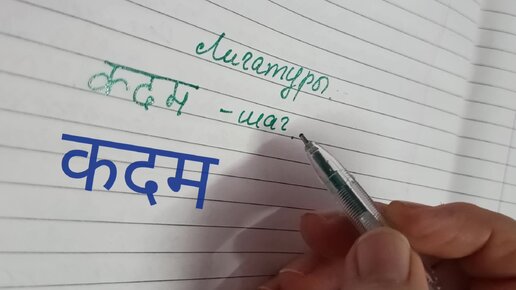 Лигатуры.
कदम - шаг.
कदम